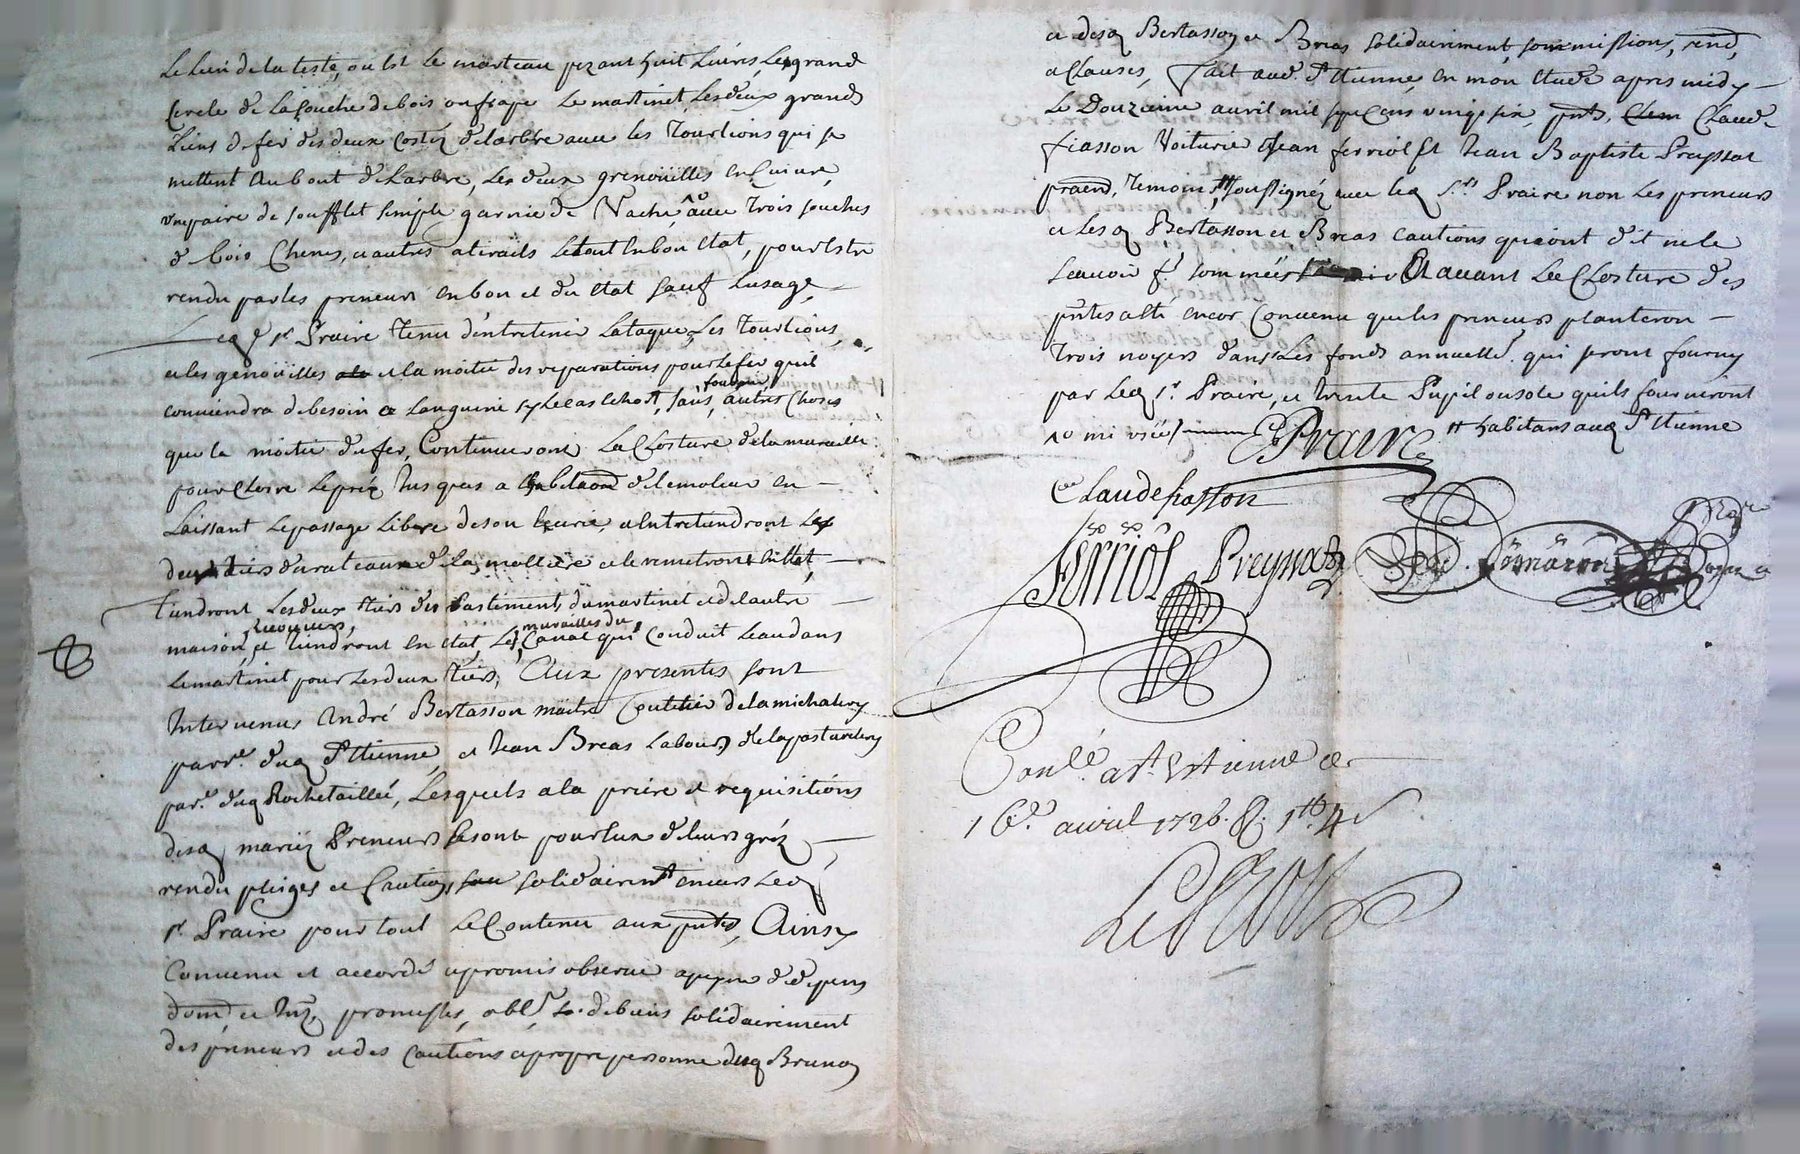 Le lien de la teste, ou est le marteau pezant huit livres, Le grand
Cercle de la souche de bois ou frape Le martinet Les deux grands
Liens de fer des deux costéz de larbre avec les Tourlions qui se
mettent au bout de Larbre, Les deux grenoüilles en Cuivre,
une paire de soufflet simple garnie de Vache, avec Trois souches
de bois Chenes, et autres atirails Le tout en bon Etat, pour Estre
rendu par les preneurs en bon et du Etat sauf Lusage,
Led sr Praire tenu dentretenir La taque, Les Tourlions,
et les genoüilles et la moitié des reparations pour Le fer quil
conviendra de besoin a Languine sy le cas Echoit, sans, fournir autres Choses
que la moitié du fer, Continueront La Closture de la muraille
pour Clorre Le préz Jusques a de lemoleur en
Laissant Le passage Libre de son Ecurie, et Entretiendront Les
deux tiers du rateau de La mollière et le remetront En Etat,
tiendront Les deux tiers des Bastiments du martinet et de lautre
maison, Et tiendront en Etat, Les murailles du Canal qui Conduit Leau dans
Le martinet pour Les deux tiers, Aux presentes sont
Intervenus André Bertasson maitre Coutelier de la michalery
parr.e dud St Etienne, et Jean Breas Labour de la pasturelery
par.e dud Rochetaillée, Lesquels a la priere et requisitions
desd mariéz Preneurs se sont pour Eux de leurs gréz
rendu pleiges et Cautions solidairemt envers Led
sr Praire pour tout Le Contenu aux pntes, Ainsy
Convenu et accordé et promis observer a peyne de depens
dom et Int, promesses, obl, de biens solidairement
des preneurs et des Cautions et propre personne dud Brunon
et desd Bertasson et Breas solidairement, sommissions, rend,
et Clauses, fait aud St Etienne, en mon Etude apres midy
Le Douzieme avril mil sept Cens vingt six, pnts, Claude
fiasson Voiturier Jean ferriol Et Jean Baptiste Preynat
praend, temoins, soussignéz avec led Sr Praire non Les preneurs
et Lesd Bertasson et Breas Cautions qui ont dit ne le
scavoir f. sommées Et avant La Closture des
pntes a Eté encor Convenu que les preneurs planteron
Trois noyers dans Les fonds annuellt. qui seront fourny
par Led sr Praire, et trente Pupil ou sole quils fourniront
Praire habitans aud St Etienne
Claude fiasson
ferriol Preynat
Conlé a St Estienne ce
16e avril 1726.